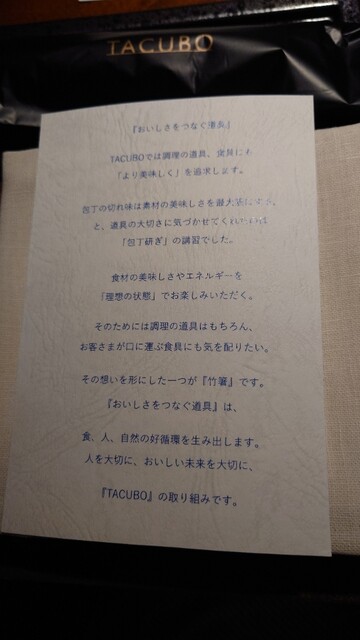 TACUBO
『おいしさをつなぐ道具』
TACUBOでは調理の道具、食具にも
「より美味しく」を追求します。
包丁の切れ味は素材の美味しさを最大
と、道具の大切さに気づかせてくれ
「包丁研ぎ」の講習でした。
食材の美味しさやエネルギーを
「理想の状態」でお楽しみいただく。
そのためには調理の道具はもちろん、
お客さまが口に運ぶ食具にも気を配りたい。
その想いを形にした一つが『竹箸』です。
『おいしさをつなぐ道具』は、
食、人、自然の好循環を生み出します。
人を大切に、おいしい未来を大切に、
『TACUBO』の取り組みです。